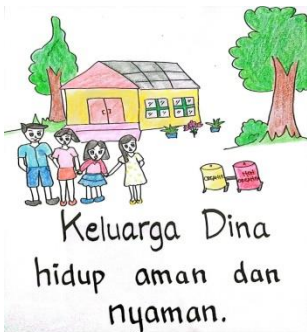 ORGANIK
NON
ORGANIK
Keluarga Dina
hidup aman dan
nyaman.